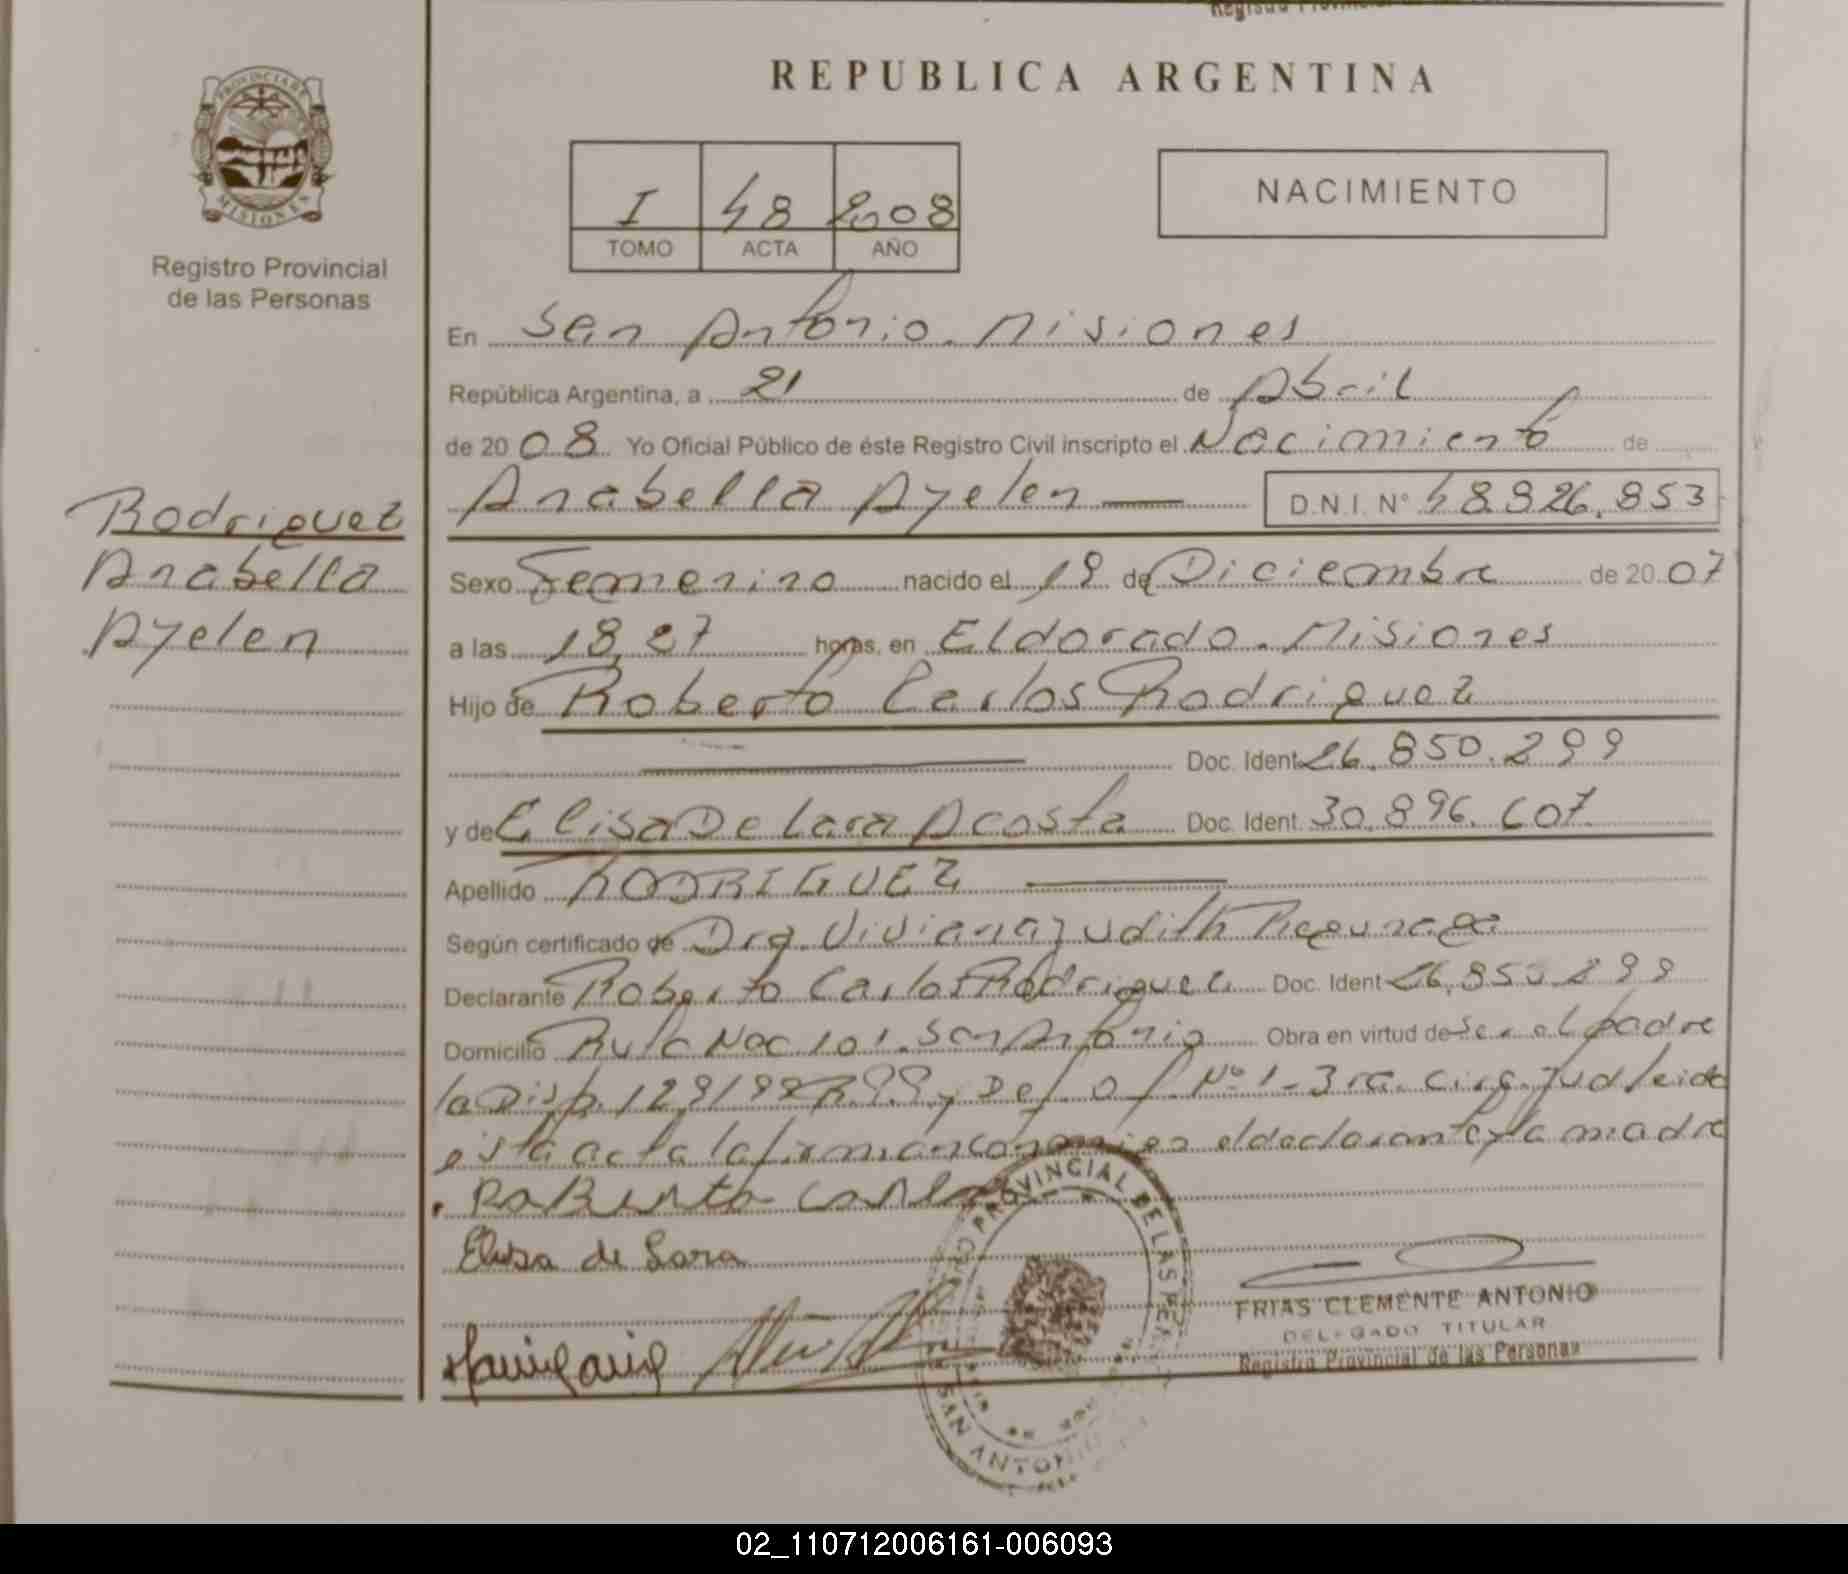 REPUBLICA ARGENTINA
PROVINCIA DE MISIONES
Registro Provincial
de las Personas
I 48 2008
TOMO ACTA AÑO
NACIMIENTO
En San Antonio. Misiones
República Argentina, a 21 de Abril
de 2008 Yo Oficial Público de éste Registro Civil inscripto el Nacimiento de
Anabella Ayelen D.N.I. Nº 48.926.853
Rodriguez
Anabella
Ayelen
Sexo Femenino nacido el 19 de Diciembre de 2007
a las 18,27 horas, en Eldorado. Misiones
Hijo de Roberto Carlos Rodriguez
Doc. Ident 26.850.299
y de Elisa De Lara Acosta Doc. Ident. 30.896.607
Apellido RODRIGUEZ
Según certificado de Dra. Viviana Judith
Declarante Roberto Carlos Rodriguez Doc. Ident 26.850.299
Domicilio Ruta Nac 101. San Antonio Obra en virtud de Ser el padre
la Disp. Nº 1-3ra. Circ. Jud leida
esta acta la firman conmigo el declarante y la madre
Roberto Carlos
Elisa de Lara
REGISTRO PROVINCIAL DE LAS PERSONAS
SAN ANTONIO
FRIAS CLEMENTE ANTONIO
DELEGADO TITULAR
Registro Provincial de las Personas
02_110712006161-006093